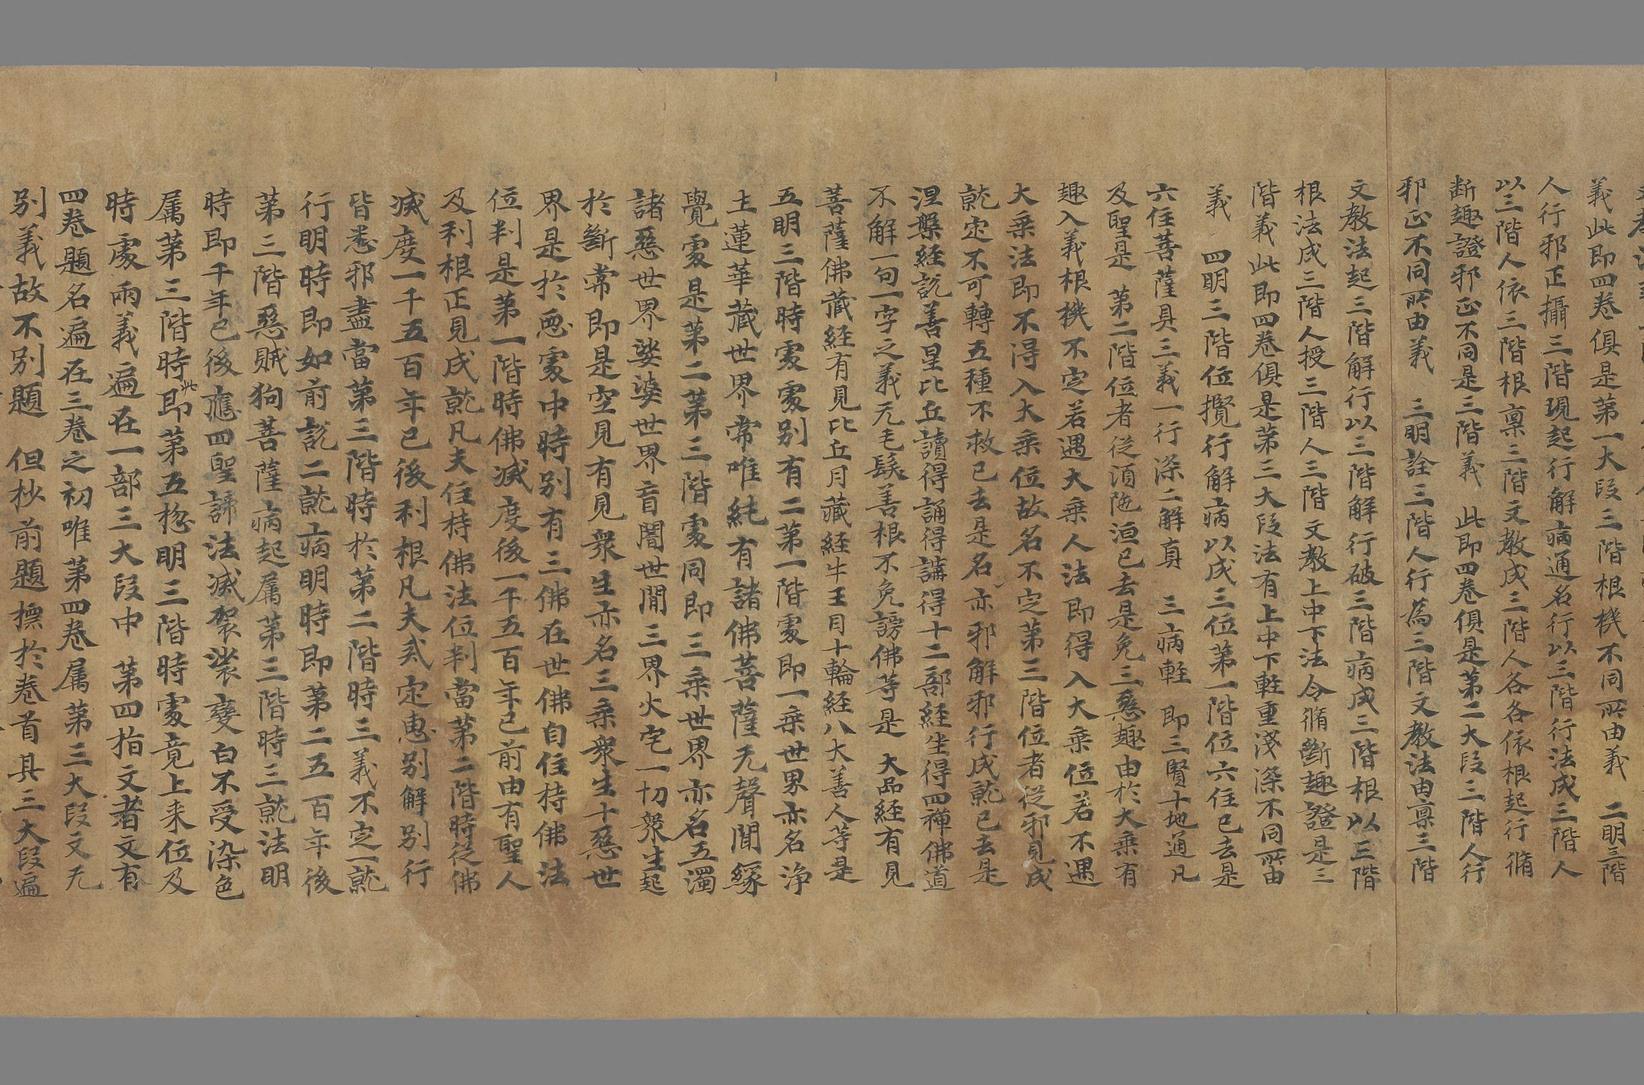 義此即四卷俱是第一大段三階根機不同所由義　二明三階
人行邪正攝三階現起行解病通名行以三階行法成三階人
以三階人依三階根稟三階文教成三階人各各依根起行脩
断趣證邪正不同是三階義　此即四卷俱是第二大段三階人行
邪正不同所由義　三明詮三階人行為三階文教法由稟三階
文教法起三階解行以三階解行破三階病成三階根以三階
根法成三階人授三階人三階文教上中下法令脩斷趣證是三
階義此即四卷俱是第三大段法有上中下輕重淺深不同所由
義　四明三階位攬行解病以成三位第一階位六住已去是
六住菩薩具三義一行深二解真　三病輕　即三賢十地通凡
及聖是　第二階位者從須陁洹已去是免三惡趣由於大乗有
趣入義根機不定若遇大乗人法即得入大乗位若不遇
大乗法即不得入大乗位故名不定第三階位者從邪見成
就定不可轉五種不救已去是名亦邪解邪行成就已去是
涅槃經說善星比丘讀得誦得講得十二部經生得四禪佛道
不解一句一字之義无毛髮善根不免謗佛等是　大品經有見
菩薩佛藏經有見比丘月藏經牛王目十輪經八大善人等是
五明三階時處處別有二第一階處即一乗世界亦名淨
土蓮華藏世界常唯純有諸佛菩薩无聲聞緣
覺處是第二第三階處同即三乗世界亦名五濁
諸惡世界娑婆世界盲闇世間三界火宅一切衆生起
於斷常即是空見有見衆生亦名三乗衆生十惡世
界是於惡處中時別有三佛在世佛自住持佛法
位判是第一階時佛滅度後一千五百年已前由有聖人
及利根正見成就凡夫住持佛法位判當第二階時從佛
滅度一千五百年已後利根凡夫貳定惠別解別行
皆悉邪盡當第三階時於第二階時三義不定一就
行明時即如前說二就病明時即第二五百年後
第三階惡賊狗菩薩病起属第三階時三就法明
時即千年已後應四聖諦法滅袈裟變白不受染色
属第三階時此即第五惣明三階時處竟上来位及
時處兩義遍在一部三大段中　第四指文者文有
四卷題名遍在三卷之初唯第四卷属第三大段文无
別義故不別題　但抄前題摽於卷首其三大段遍